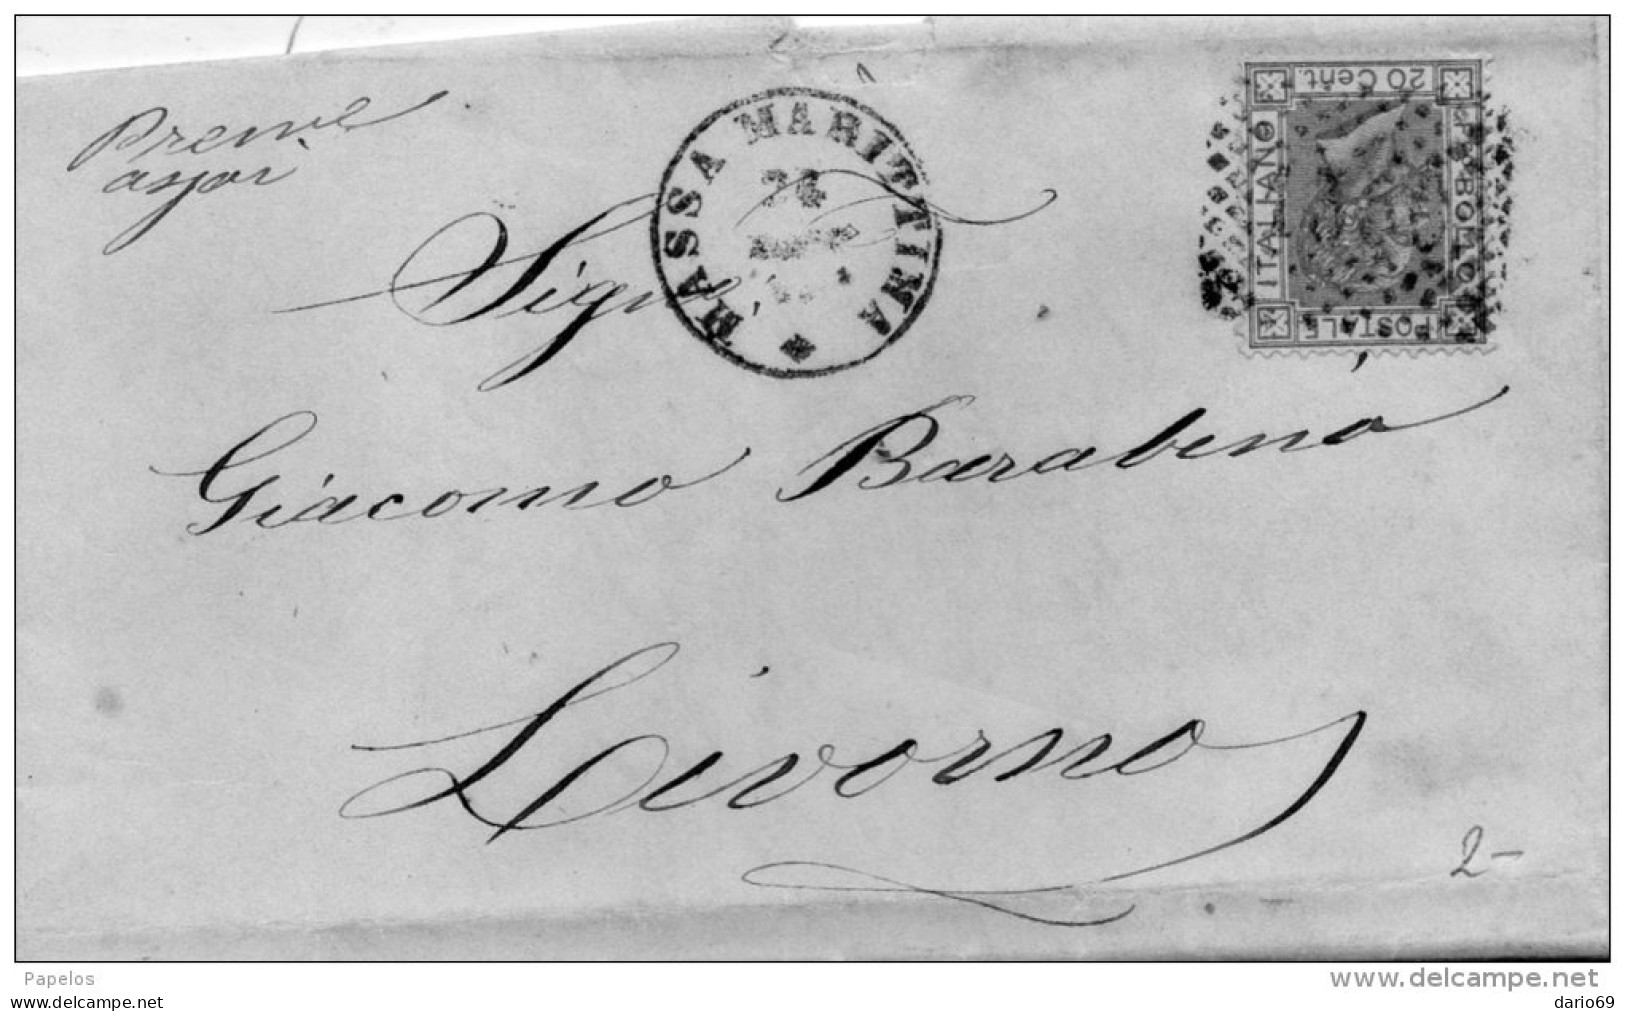 Preme
assai
MASSA MARITTIMA
20 Cent.
FRANCO BOLLO
POSTALE
ITALIANO
Sigr
Giacomo Barabino
Livorno
2-
Papelos
www.delcampe.net
www.delcampe.net
dario69